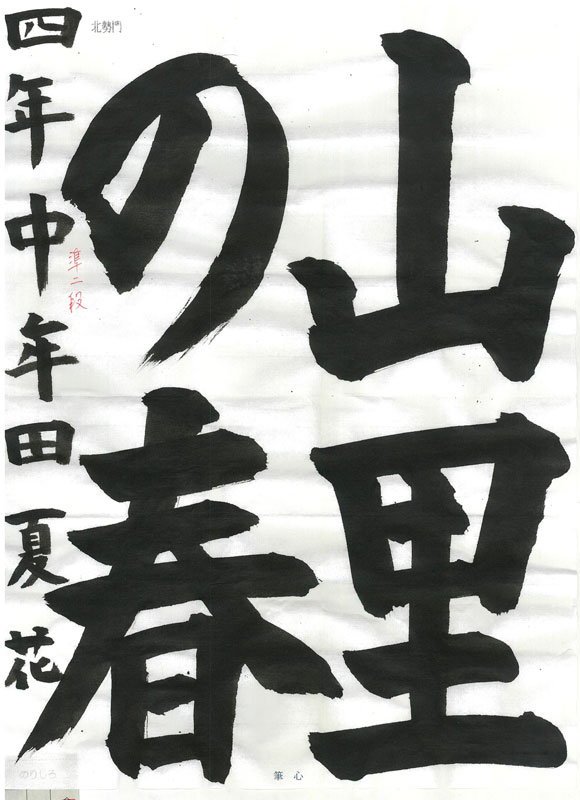 山里
の春
四年中年田夏花
準二段
北勢門
筆心
のりしろ